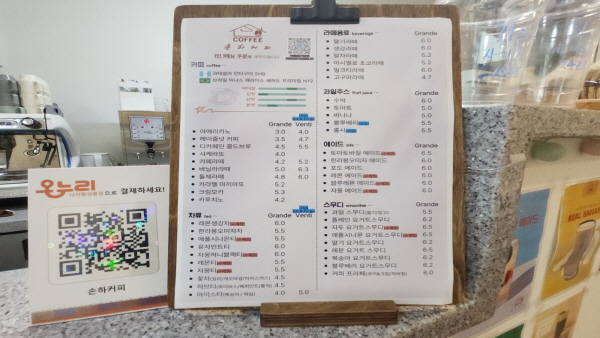 COFFEE
손 하 커 피
커피 coffee
Grande Venti
아메리카노 3.0 4.0
헤이즐넛 커피 3.5 4.7
디카페인 콜드브루 4.5 5.5
사케라또 4.0
카페라떼 4.2 5.2
바닐라라떼 5.0 6.3
돌체라떼 4.8 6.0
카라멜 마끼아또 5.2
크림모카 5.3
카푸치노 4.2
차류 tea
Grande Venti
레몬생강차 6.0
한라봉오미자차 5.5
애플시나몬티 5.5
유자민트티 6.0
자몽허니블랙티 6.0
레몬티 5.5
자몽티 5.5
꽃차 4.5
허브티 4.5
아이스티 4.0 5.0
라떼음료 beverage Grande
딸기라떼 6.0
생강라떼 6.0
말차라떼 5.5
마시멜로 초코라떼 5.2
밀크티라떼 6.0
고구마라떼 4.7
과일주스 fruit juice Grande
수박 6.0
토마토 5.0
바나나 5.0
블루베리 5.5
홍시 5.5
에이드 ade Grande
토마토바질 에이드 5.5
한라봉오미자 에이드 6.0
포도 에이드 6.0
레몬 에이드 6.0
블루레몬 에이드 6.0
자몽 에이드 6.0
스무디 smoothie Grande
과일 스무디 5.5
플레인 요거트스무디 6.2
자두 요거트스무디 6.5
애플시나몬 요거트스무디 6.5
딸기 요거트스무디 6.2
레몬 요거트스무디 5.5
복숭아 요거트스무디 6.2
블루베리 요거트스무디 6.2
커피 프라페 6.0
온누리
디지털상품권으로 결제하세요!
손하커피
에이드
REAL BANANA